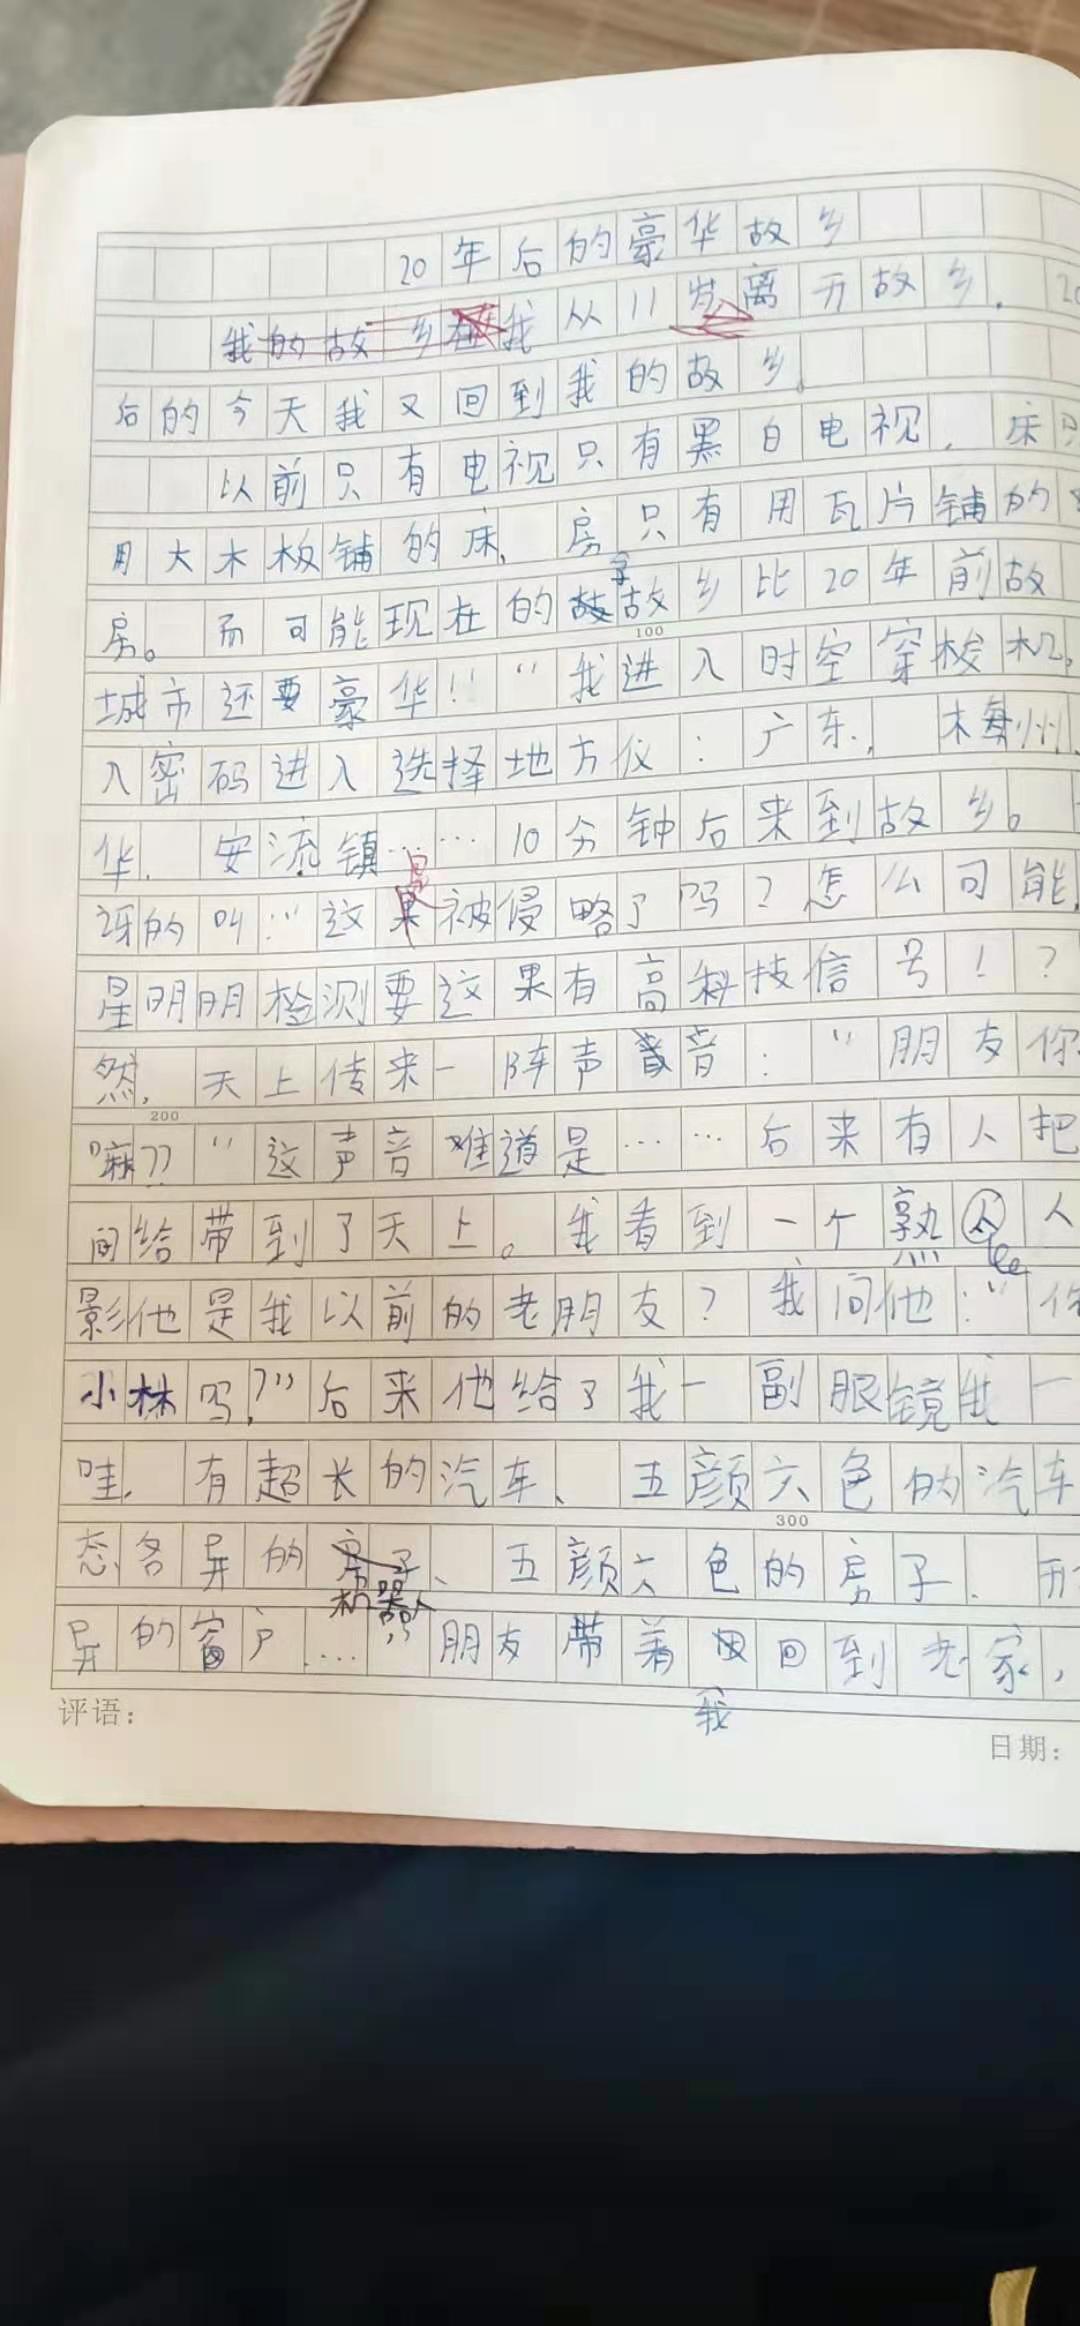 20年后的豪华故乡
我的故乡在我从11岁离开故乡. 20
后的今天我又回到我的故乡。
以前只有电视只有黑白电视, 床只
用大木板铺的床, 房只有用瓦片铺的
房。而可能现在的故乡比20年前故
100
城市还要豪华!! "我进入时空穿梭机,
入密码进入选择地方仪: 广东, 梅州,
华, 安流镇……10分钟后来到故乡。
讶的叫:"这果是被侵略了吗?怎么可能,
星明明检测要这果有高科技信号!?
然, 天上传来一阵声音: "朋友你
200
嘛?? "这声音难道是……后来有人把
间给带到了天上。我看到一个熟人
影他是我以前的老朋友? 我问他:"你
小林吗?"后来他给了我一副眼镜我一
哇, 有超长的汽车、五颜六色的汽车
300
态各异的机器人、五颜六色的房子、形
异的窗户…… 朋友带着我回到老家,
评语:
日期: